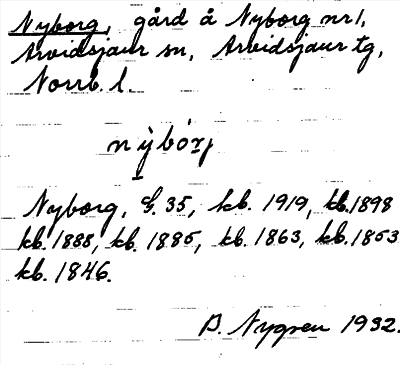 Nyborg, gård å Nyborg nr 1,
Arvidsjaur sn, Arvidsjaur tg,
Norrb. l.
nỳbór̨j
Nyborg, G. 35, kb. 1919, kb. 1898
kb. 1888, kb. 1885, kb. 1863, kb. 1853
kb. 1846.
B. Nygren 1932.